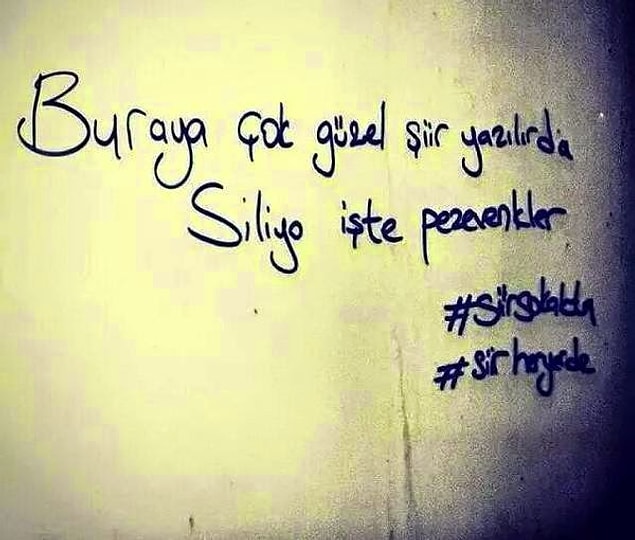 Buraya çok güzel şiir yazılırda
Siliyo işte pezevenkler
#şiirsokakta
#şiirheryerde